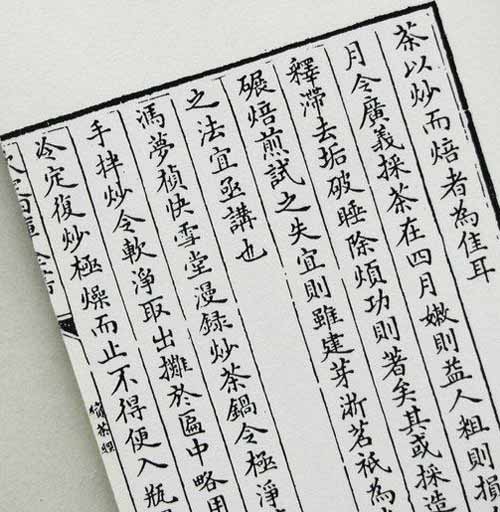 茶以炒而焙者為佳耳
月令廣義採茶在四月嫩則益人粗則損
釋滯去垢破睡除煩功則著矣其或採造
碾焙煎試之失宜則雖建芽浙茗祇為
之法宜亟講也
馮夢禎快雪堂漫録炒茶鍋令極淨
手拌炒令軟淨取出攤於匾中略用
冷定復炒極燥而止不得便入瓶
續茶經